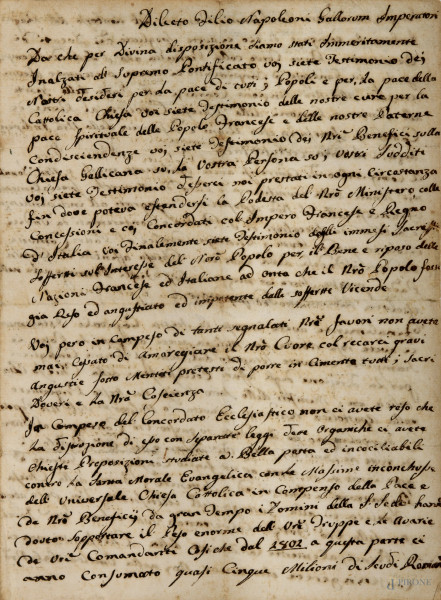 Dileto Filio Napoleoni Gallorum Imperatori
Da che per Divina disposizione siamo stati Immeritamente
Inalzati al Supremo Pontificato voi siete Testimonio dei
Nostri desiderj per la pace di tutti i Popoli e per la pace della
Cattolica Chiesa voi siete Testimonio delle nostre cure per la
pace Spirituale delle Popolo Francese e delle nostre Paterne
Condiscendenze voi siete Testimonio dei Nri Benefici sulla
Chiesa Gallicana su la Vostra Persona su i Vostri Sudditi
voi siete Testimonio d'esserci noi prestati in ogni Circostanza
fin dove poteva estendersi la Podestà del Nro Ministero colle
Concessioni e coi Concordati coll Impero Francese e Regno
d'Italia voi Finalmente siete Testimonio degli immensi Sacrifizi
Sofferti sull Interesse del Nostro Popolo per il Bene e riposo delle
Nazioni Francese ed Italiane ad onta che il Nro Popolo fosse
gia leso ed angustiato ed impotente dalle sofferte Vicende
Voi pero in Compeso di tanti segnalati Nri Favori non avete
mai Cessato di Amaregiare il Nro Cuore col recarci gravi
Angustie sotto Mentiti pretesti di porre in Cimento tutti i Sacri
Doveri e la Nra Coscienza
In Compeso del Concordato Ecclesiastico non ci avete reso che
la distruzione di esso con Separate leggi dette Organiche ci avete
Chieste Proposizioni studiate a Bella posta ed inconciliabili
contro la Santa Morale Evangelica contro Massime inconcusse
dell Universale Chiesa Cattolica in Compenso della Pace e
de Nri Beneficij da gran Tempo i Domini della S. Sede hanno
dovuto Sopportare il Peso enorme dell Vre Truppe e le Avarie
de Vri Comandanti Cosiche dal 1802 a questa parte ci
anno Consumato quasi Cinque Milioni di Scudi Romani